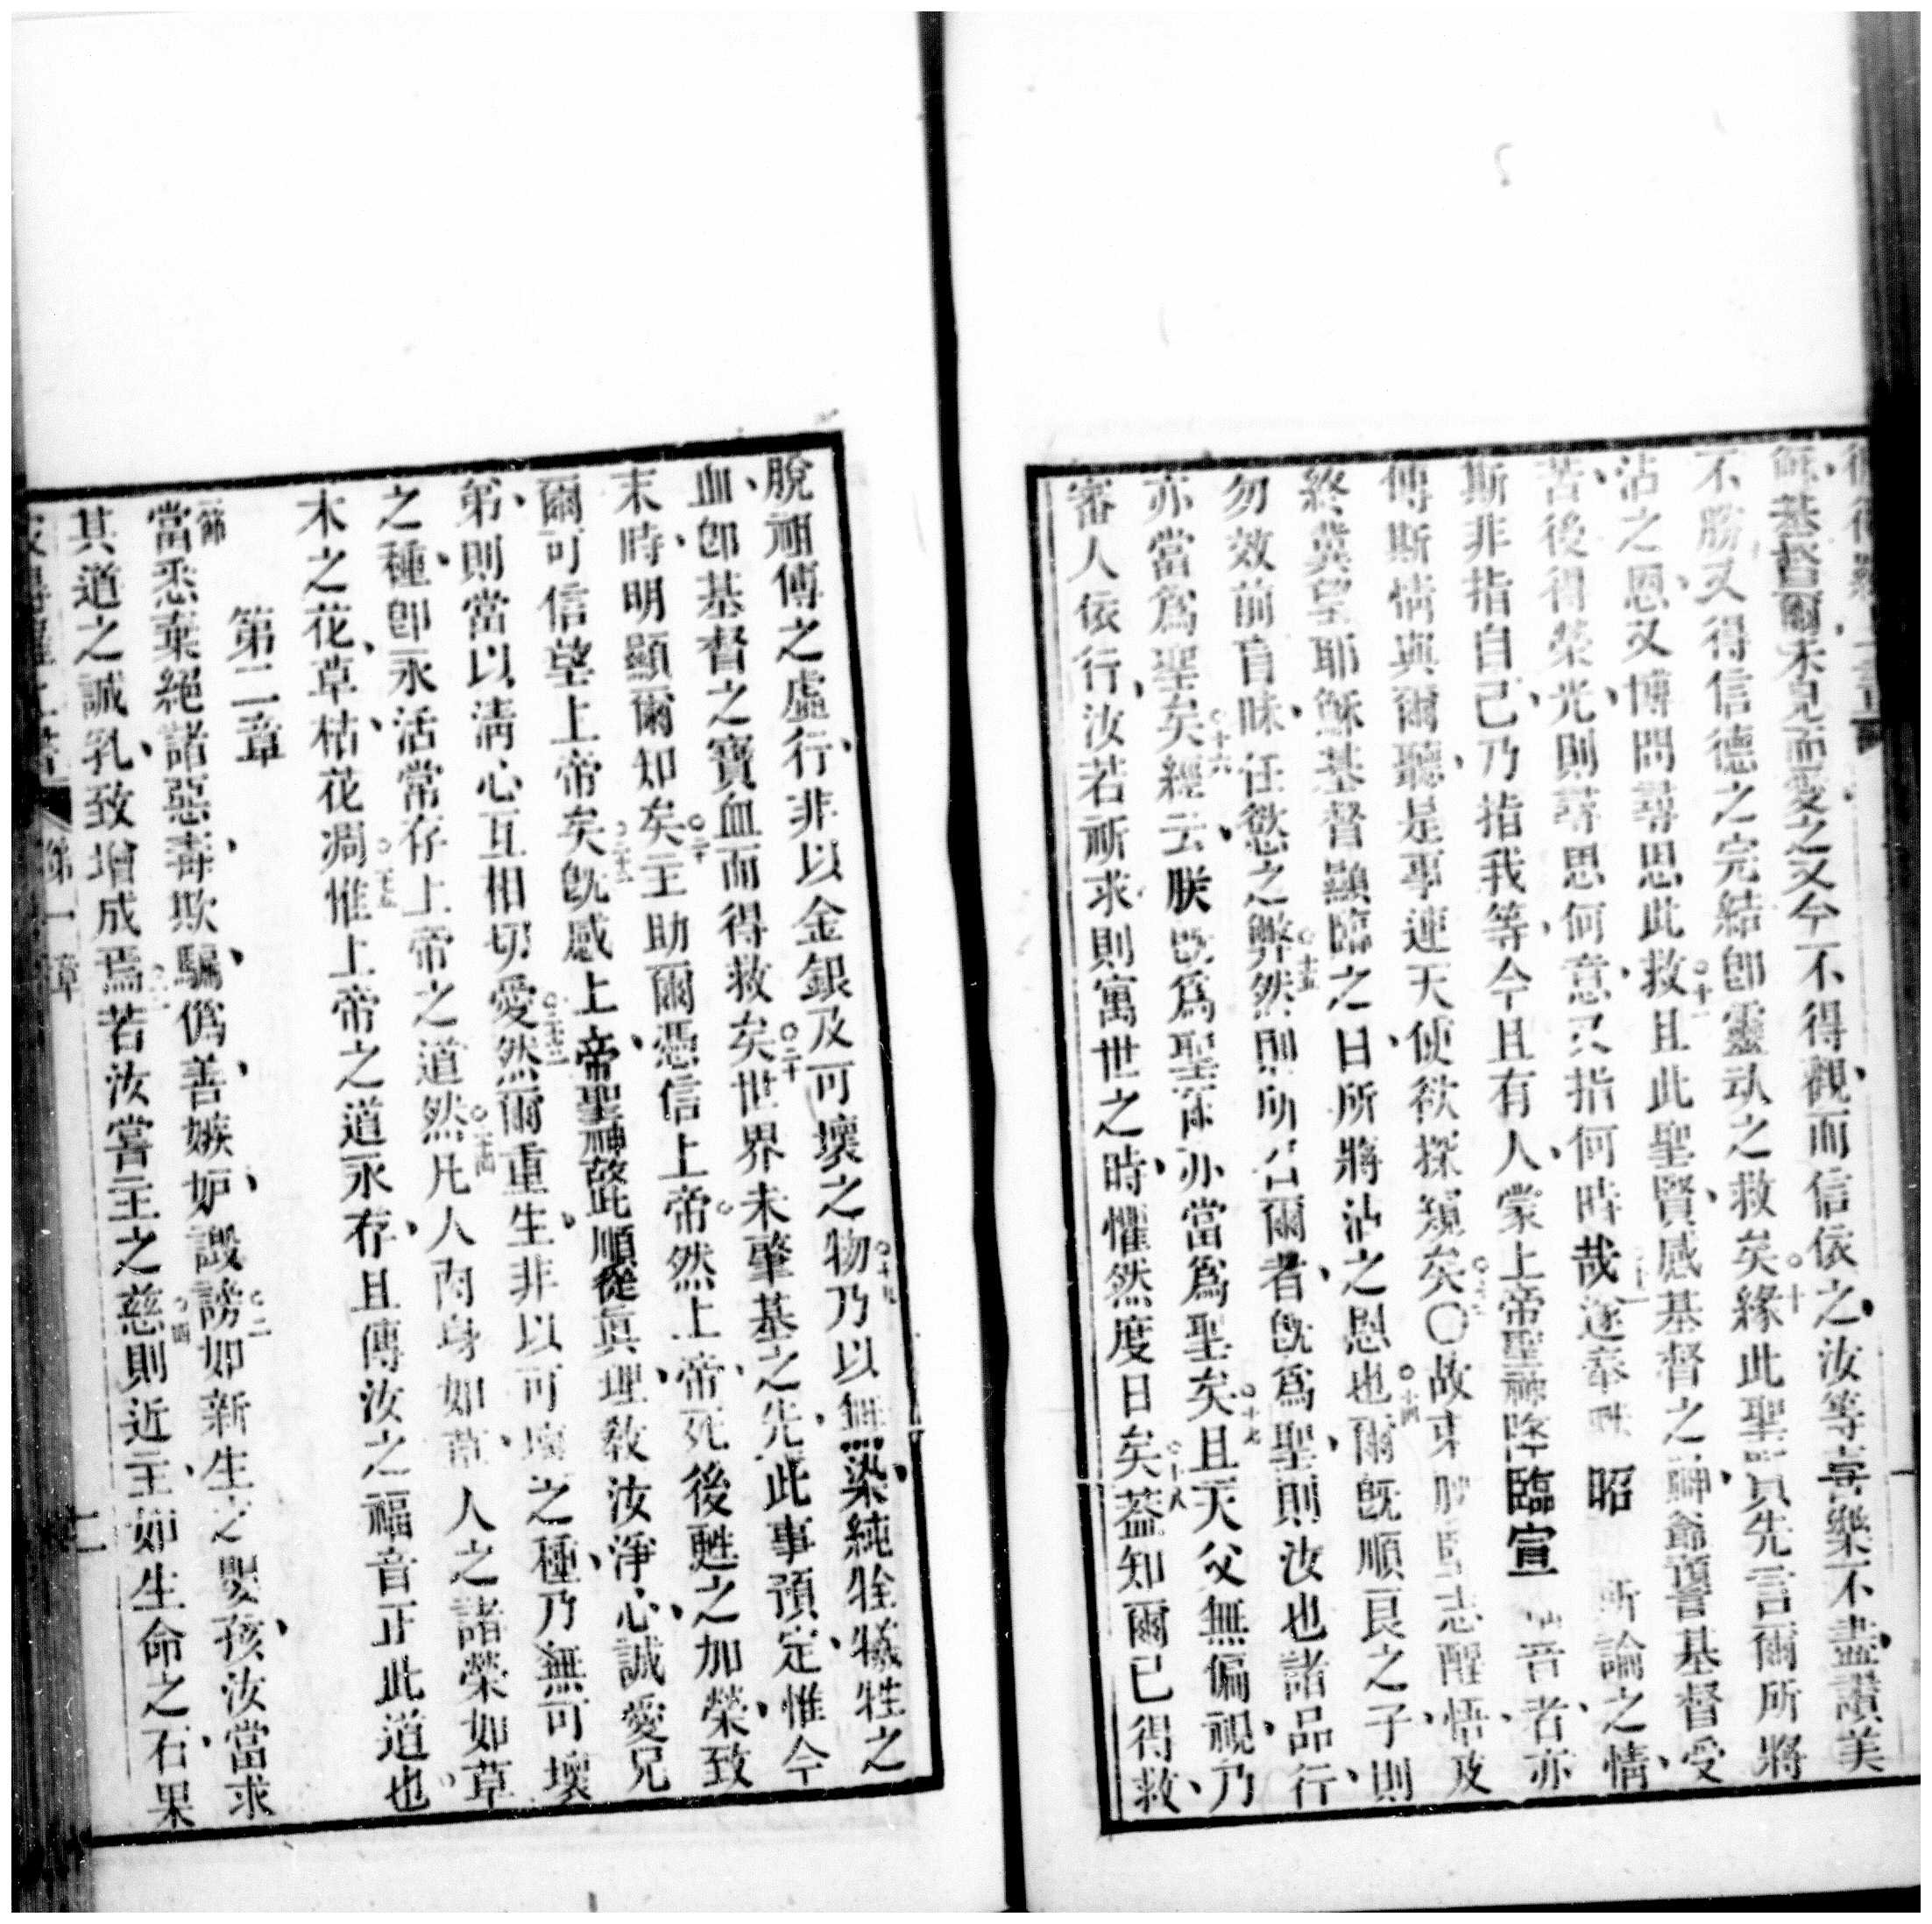 穌基督爾未見而愛之又今不得觀而信依之汝等喜樂不盡讚美
不勝又得信德之完結卽靈䰟之救矣○十緣此聖賢先言爾所將
沾之恩又博問尋思此救○十一且此聖賢感基督之神爺預言基督受
苦後得榮光則尋思何意又指何時哉遂奉 昭 所論之情
斯非指自己乃指我等今且有人蒙上帝聖神降臨宣 音者亦
傳斯情與爾聽是事連天使欲探窺矣〇故束 志醒悟及
終冀望耶穌基督顯臨之日所將沾之恩也○十四爾旣順良之子則
勿效前盲昧任慾之弊○十五然則所召爾者旣爲聖則汝也諸品行
亦當爲聖矣○十六經云朕旣爲聖 亦當爲聖矣○十七且天父無偏視乃
審人依行汝若祈求則寓世之時懼然度日矣○十八葢知爾已得救
脫祖傳之虛行非以金銀及可壞之物○十九乃以無染純牷犧牲之
血卽基督之寶血而得救矣○二十世界未肇基之先此事預定惟今
末時明顯爾知矣主助爾憑信上帝然上帝死後甦之加榮致
爾可信望上帝矣○二十二旣感上帝聖神啟此順從眞理教汝淨心誠愛兄
弟則當以淸心互相切愛○二十三然爾重生非以可壞之種乃無可壞
之種卽永活常存上帝之道○二十四然凡人肉身如草人之諸榮如草
木之花草枯花凋○二十五惟上帝之道永存且傳汝之福音正此道也
第二章
一節當悉棄絕諸惡毒欺騙僞善嫉妒譭謗○二如新生之嬰孩汝當求
其道之誠乳致增成焉○三若汝嘗主之慈○四則近主如生命之石果
第一章 二